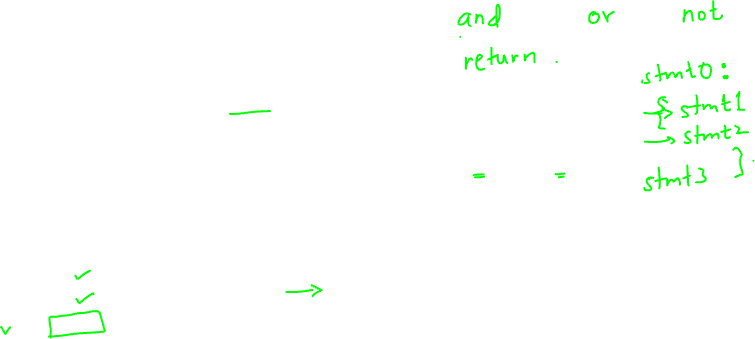 and or not
return .
stmt0:
{ stmt1
stmt2
= = stmt3 }